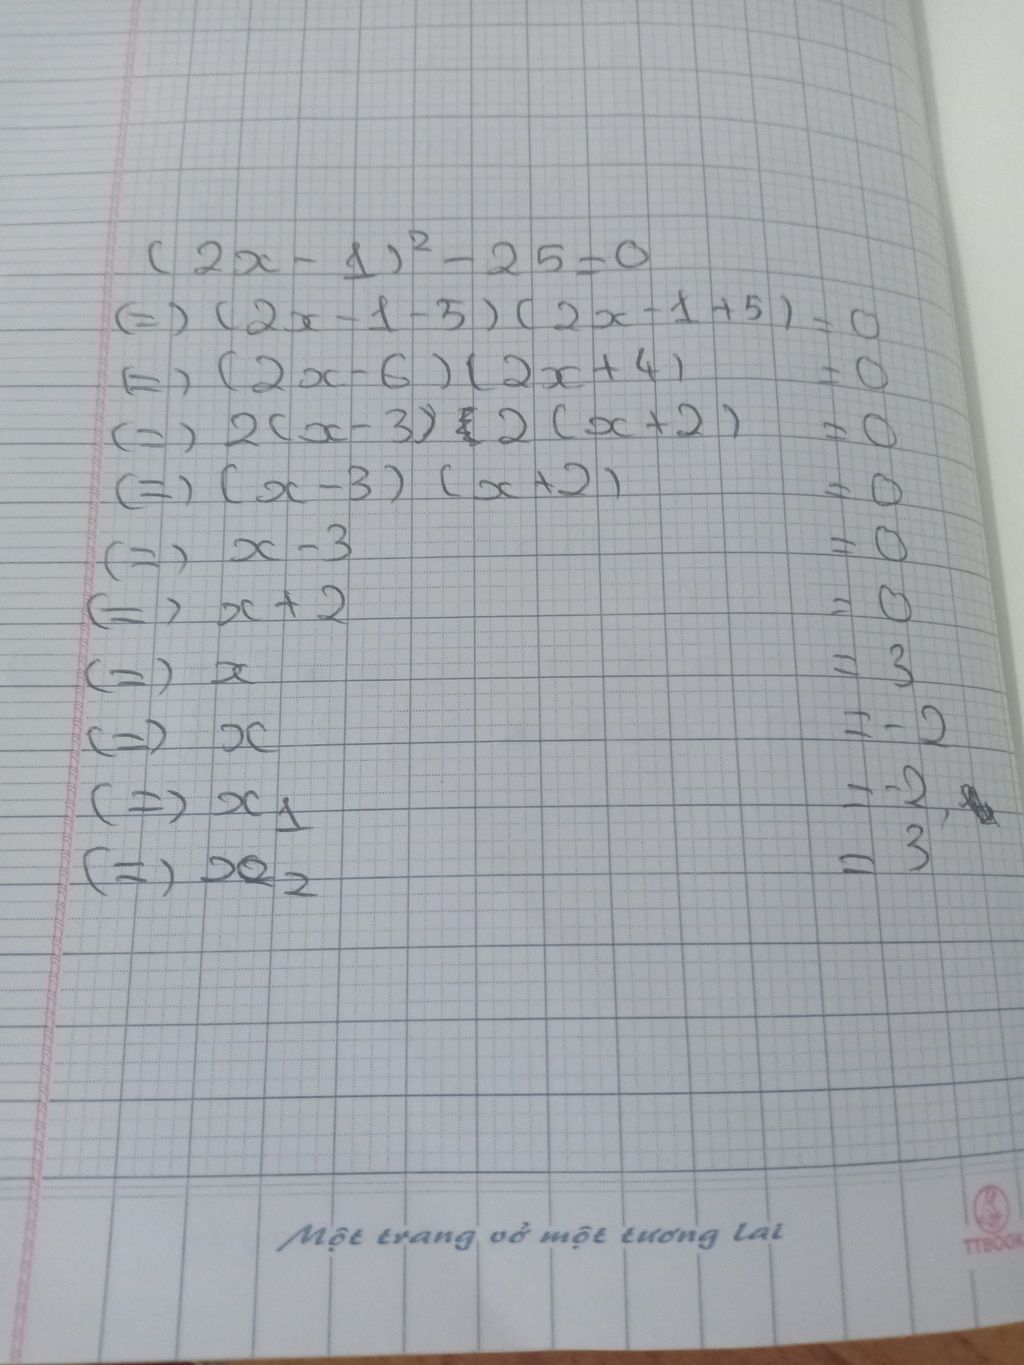 (2x-1)² - 25 = 0
(=) (2x-1-5)(2x-1+5) = 0
(=) (2x-6)(2x+4) = 0
(=) 2(x-3) 2(x+2) = 0
(=) (x-3) (x+2) = 0
(=) x-3 = 0
(=) x+2 = 0
(=) x = 3
(=) x = -2
(=) x₁ = -2,
(=) x₂ = 3
Một trang vở một tương lai
TTBOOK